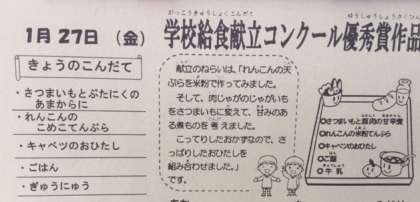 1月 27日 (金)
がっこうきゅうしょくこんだて ゆうしゅうしょうさくひん
学校給食献立コンクール優秀賞作品
きょうのこんだて
・さつまいもとぶたにくの
あまからに
・れんこんの
こめこてんぷら
・キャベツのおひたし
・ごはん
・ぎゅうにゅう
献立のねらいは、「れんこんの天
ぷらを米粉で作ってみました。
そして、肉じゃがのじゃがいも
をさつまいもに変えて、甘みのあ
る煮ものを考えました。
こってりしたおかずなので、さ
っぱりしたおひたしを
組み合わせました。」
です。
○さつまいもと豚肉の甘辛煮
○れんこんの米粉天ぷら
○キャベツのおひたし
○ご飯
○牛乳